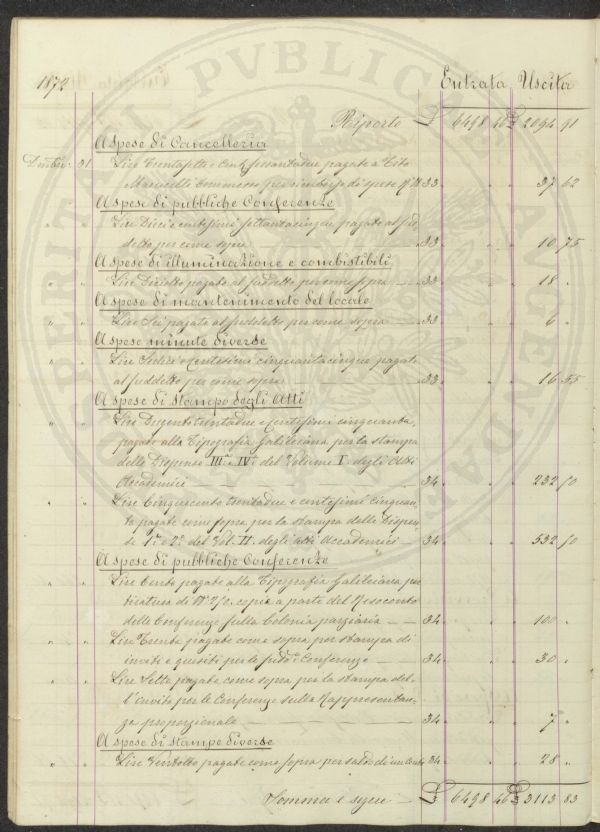 1872 Entrata Uscita
Riporto £ 6498 46 £ 2094 91
A spese di Cancelleria
Dicembre 31 Lire Trentasette e Cent. sessantadue pagate a Tito
Marucelli Commesso per rimborso di spese N° 33 " " 37 62
A spese di pubbliche Conferenze
" " Lire Dieci e centesimi settantacinque pagate al sud
detto per come sopra 33 " " 10 75
A spese di illuminazione e combistibili
" " Lire Diciotto pagate al suddetto per come sopra 33 " " 18 "
A spese di mantenimento del locale
" " Lire Sei pagate al suddetto per come sopra 33 " " 6 "
A spese minute diverse
" " Lire Sedici e Centesimi cinquantacinque pagate
al suddetto per come sopra 33 " " 16 55
A spese di stampo degli Atti
" " Lire Dugento trentadue e centesimi cinquanta,
pagate alla Tipografia Galileiana per la stampa
delle Dispense III. e IV. del Volume I. degli Atti
Accademici 34 " " 232 50
" " Lire Cinquecento trentadue e centesimi Cinquan
ta pagate come sopra per la stampa delle Dispen
se 1ª e 2ª del Vol. II. degli atti Accademici 34 " " 532 50
A spese di pubbliche Conferenze
" " Lire Cento pagate alla Tipografia Galileiana per
tiratura di N° 250 copie a parte del Resoconto
delle Conferenze sulla Colonia parziaria 34 " " 100 "
" " Lire Trenta pagate come sopra per stampa di
inviti e quesiti per le sudde Conferenze 34 " " 30 "
" " Lire Sette pagate come sopra per la stampa del
l'invito per le Conferenze sulla Rappresentan
za proporzionale 34 " " 7 "
A spese di stampe diverse
" " Lire Ventotto pagate come sopra per saldo di un conto 34 " " 28 "
Somma e segue £ 6498 46 £ 3113 83
PVBLICA
PROSPERITATI AVGENDAE